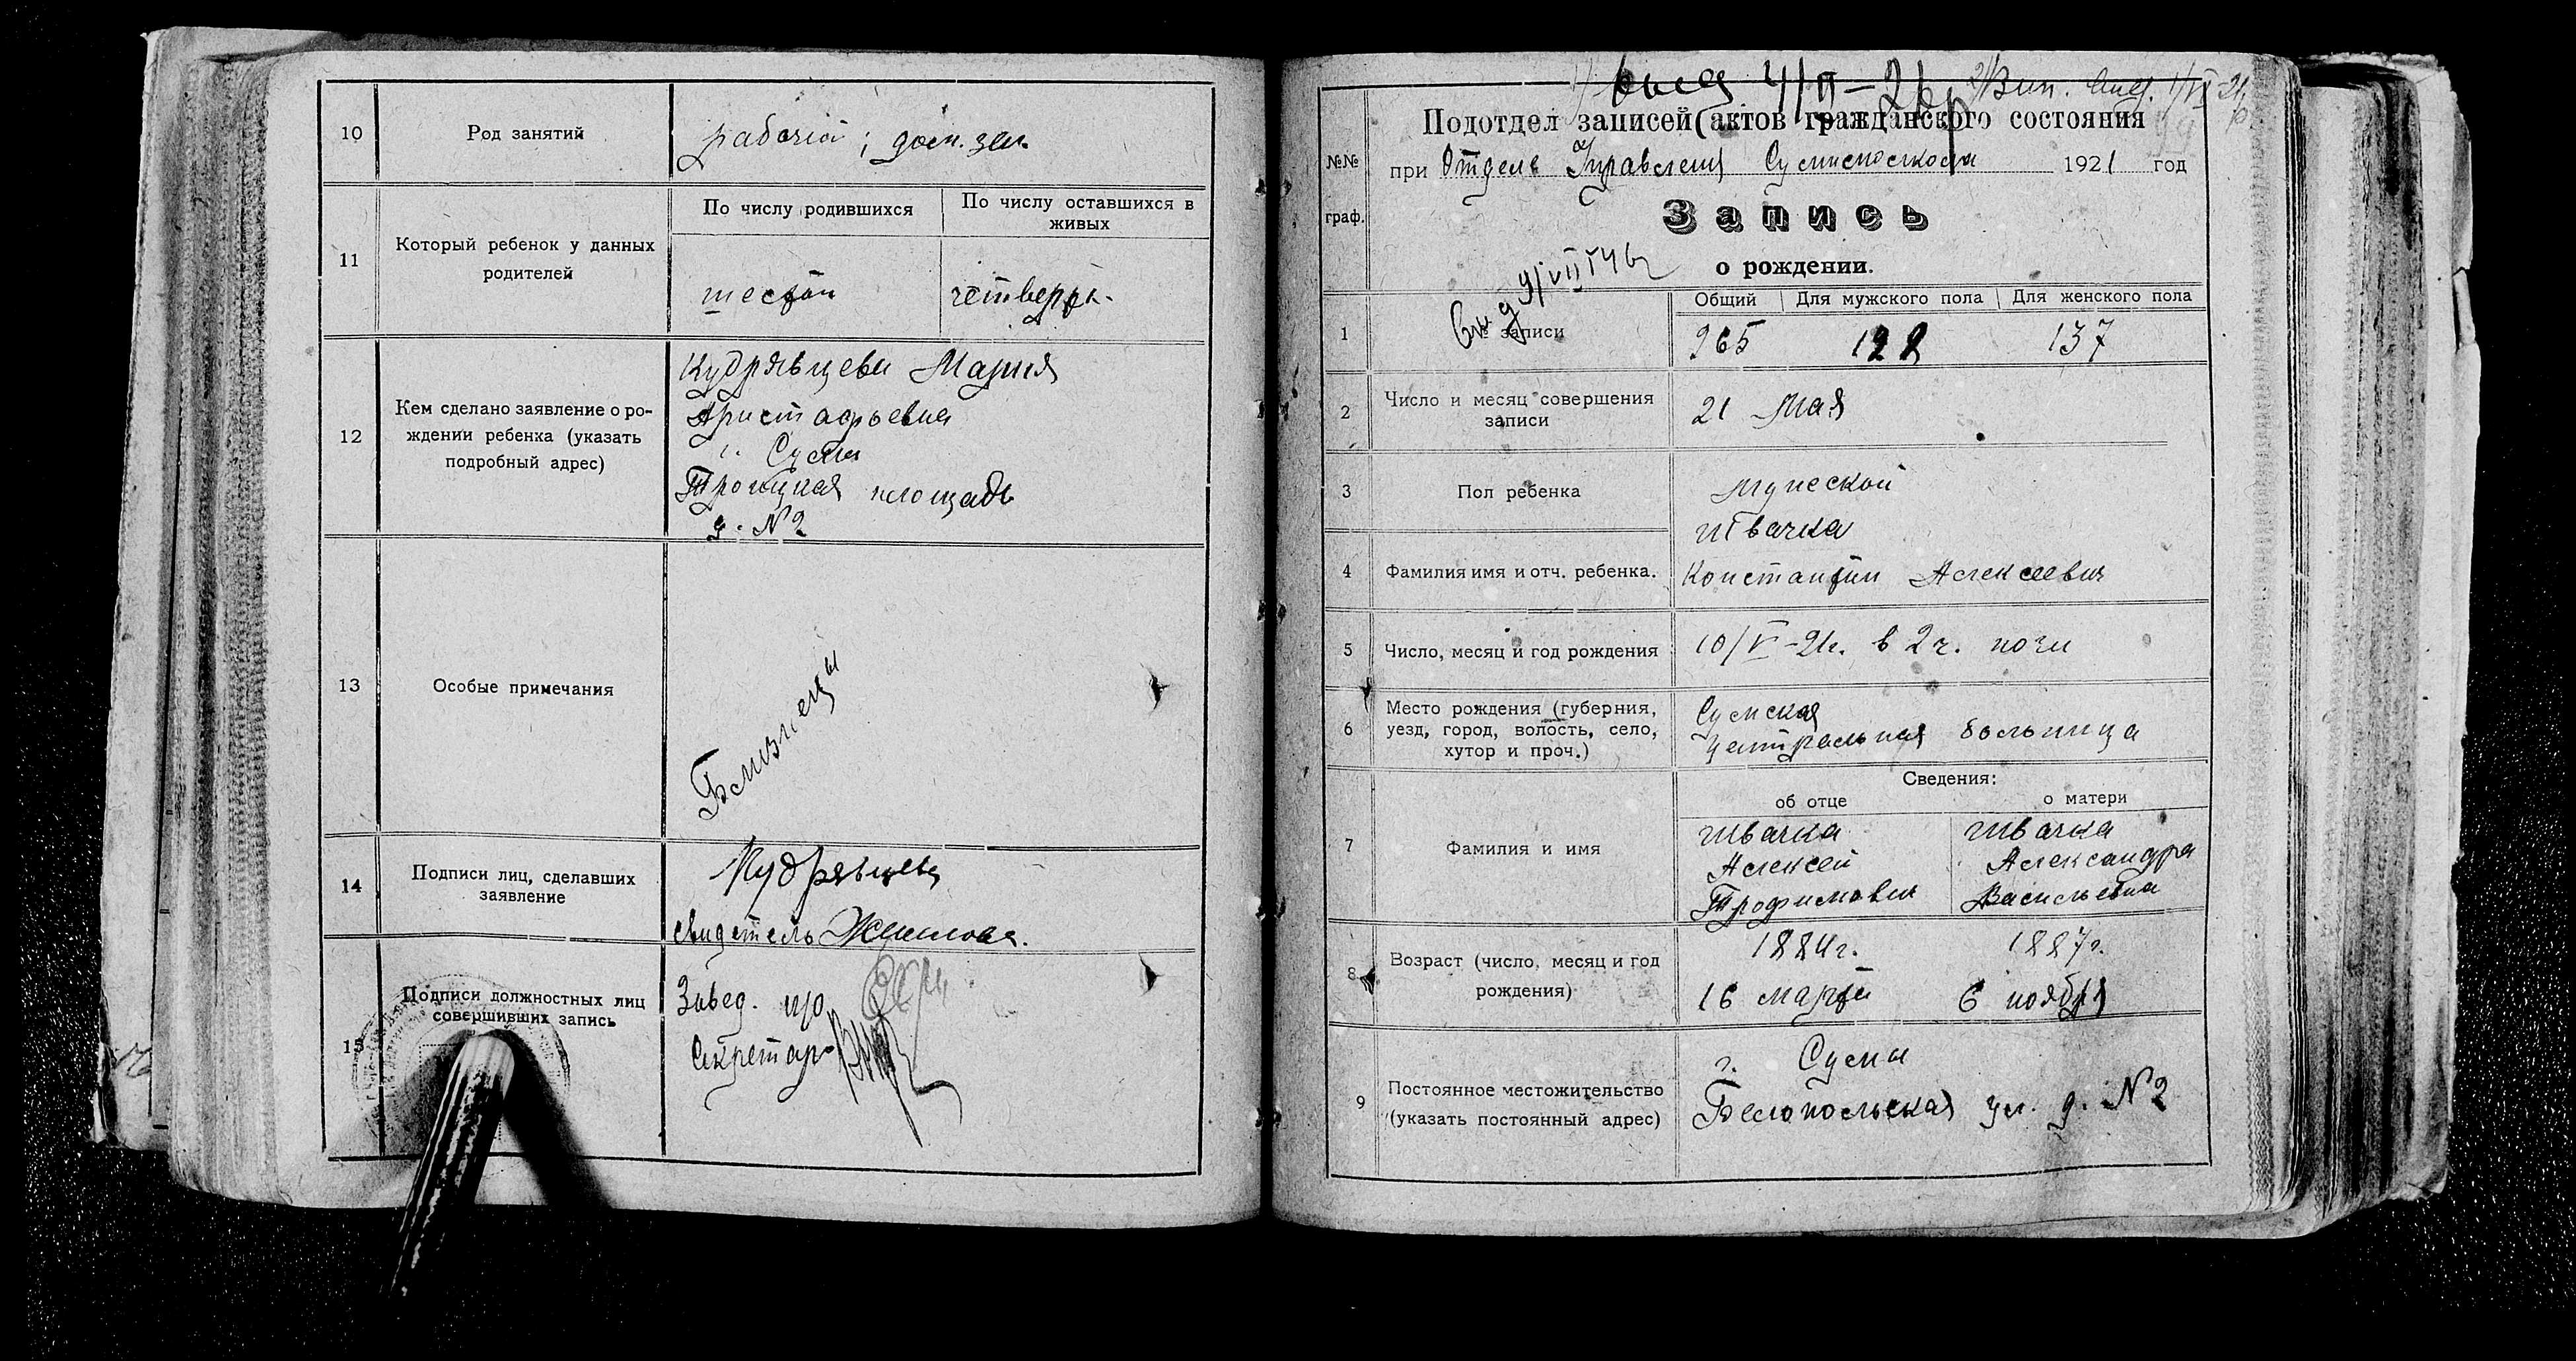 10
Род занятий
рабочій ; дом. зан.
11
Который ребенок у данных
родителей
По числу родившихся
По числу оставшихся в
живых
шестой
четверт.
12
Кем сделано заявление о ро-
ждении ребенка (указать
подробный адрес)
Кудрявцева Мария
Аристарьевна
г. Сумы
Троицкая площадь
д. N 2
13
Особые примечания
Близнецы
14
Подписи лиц, сделавших
заявление
Кудрявцева
свидетель
15
Подписи должностных лиц
совершивших запись
Завед. п/о
Секретарь
Подотдел записей актов гражданского состояния
№№
граф.
при Отделе Управления 1921 год
Запись
о рождении.
1
№ записи
Общий
Для мужского пола
Для женского пола
265 128 137
2
Число и месяц совершения
записи
21 Мая
3
Пол ребенка
Мужеской
4
Фамилия имя и отч. ребенка.
Швачка
Константин Алексеевич
5
Число, месяц и год рождения
10/V-21г. в 2 ч. ночи
6
Место рождения (губерния,
уезд, город, волость, село,
хутор и проч.)
Сумская
центральная больница
7
Фамилия и имя
Сведения:
об отце
о матери
Швачка
Алексей
Трофимович
Швачка
Александра
Васильевна
8
Возраст (число, месяц и год
рождения)
1884г.
16 марта
1887г.
6 ноября
9
Постоянное местожительство
(указать постоянный адрес)
г. Сумы
Белопольская ул. д. N 2